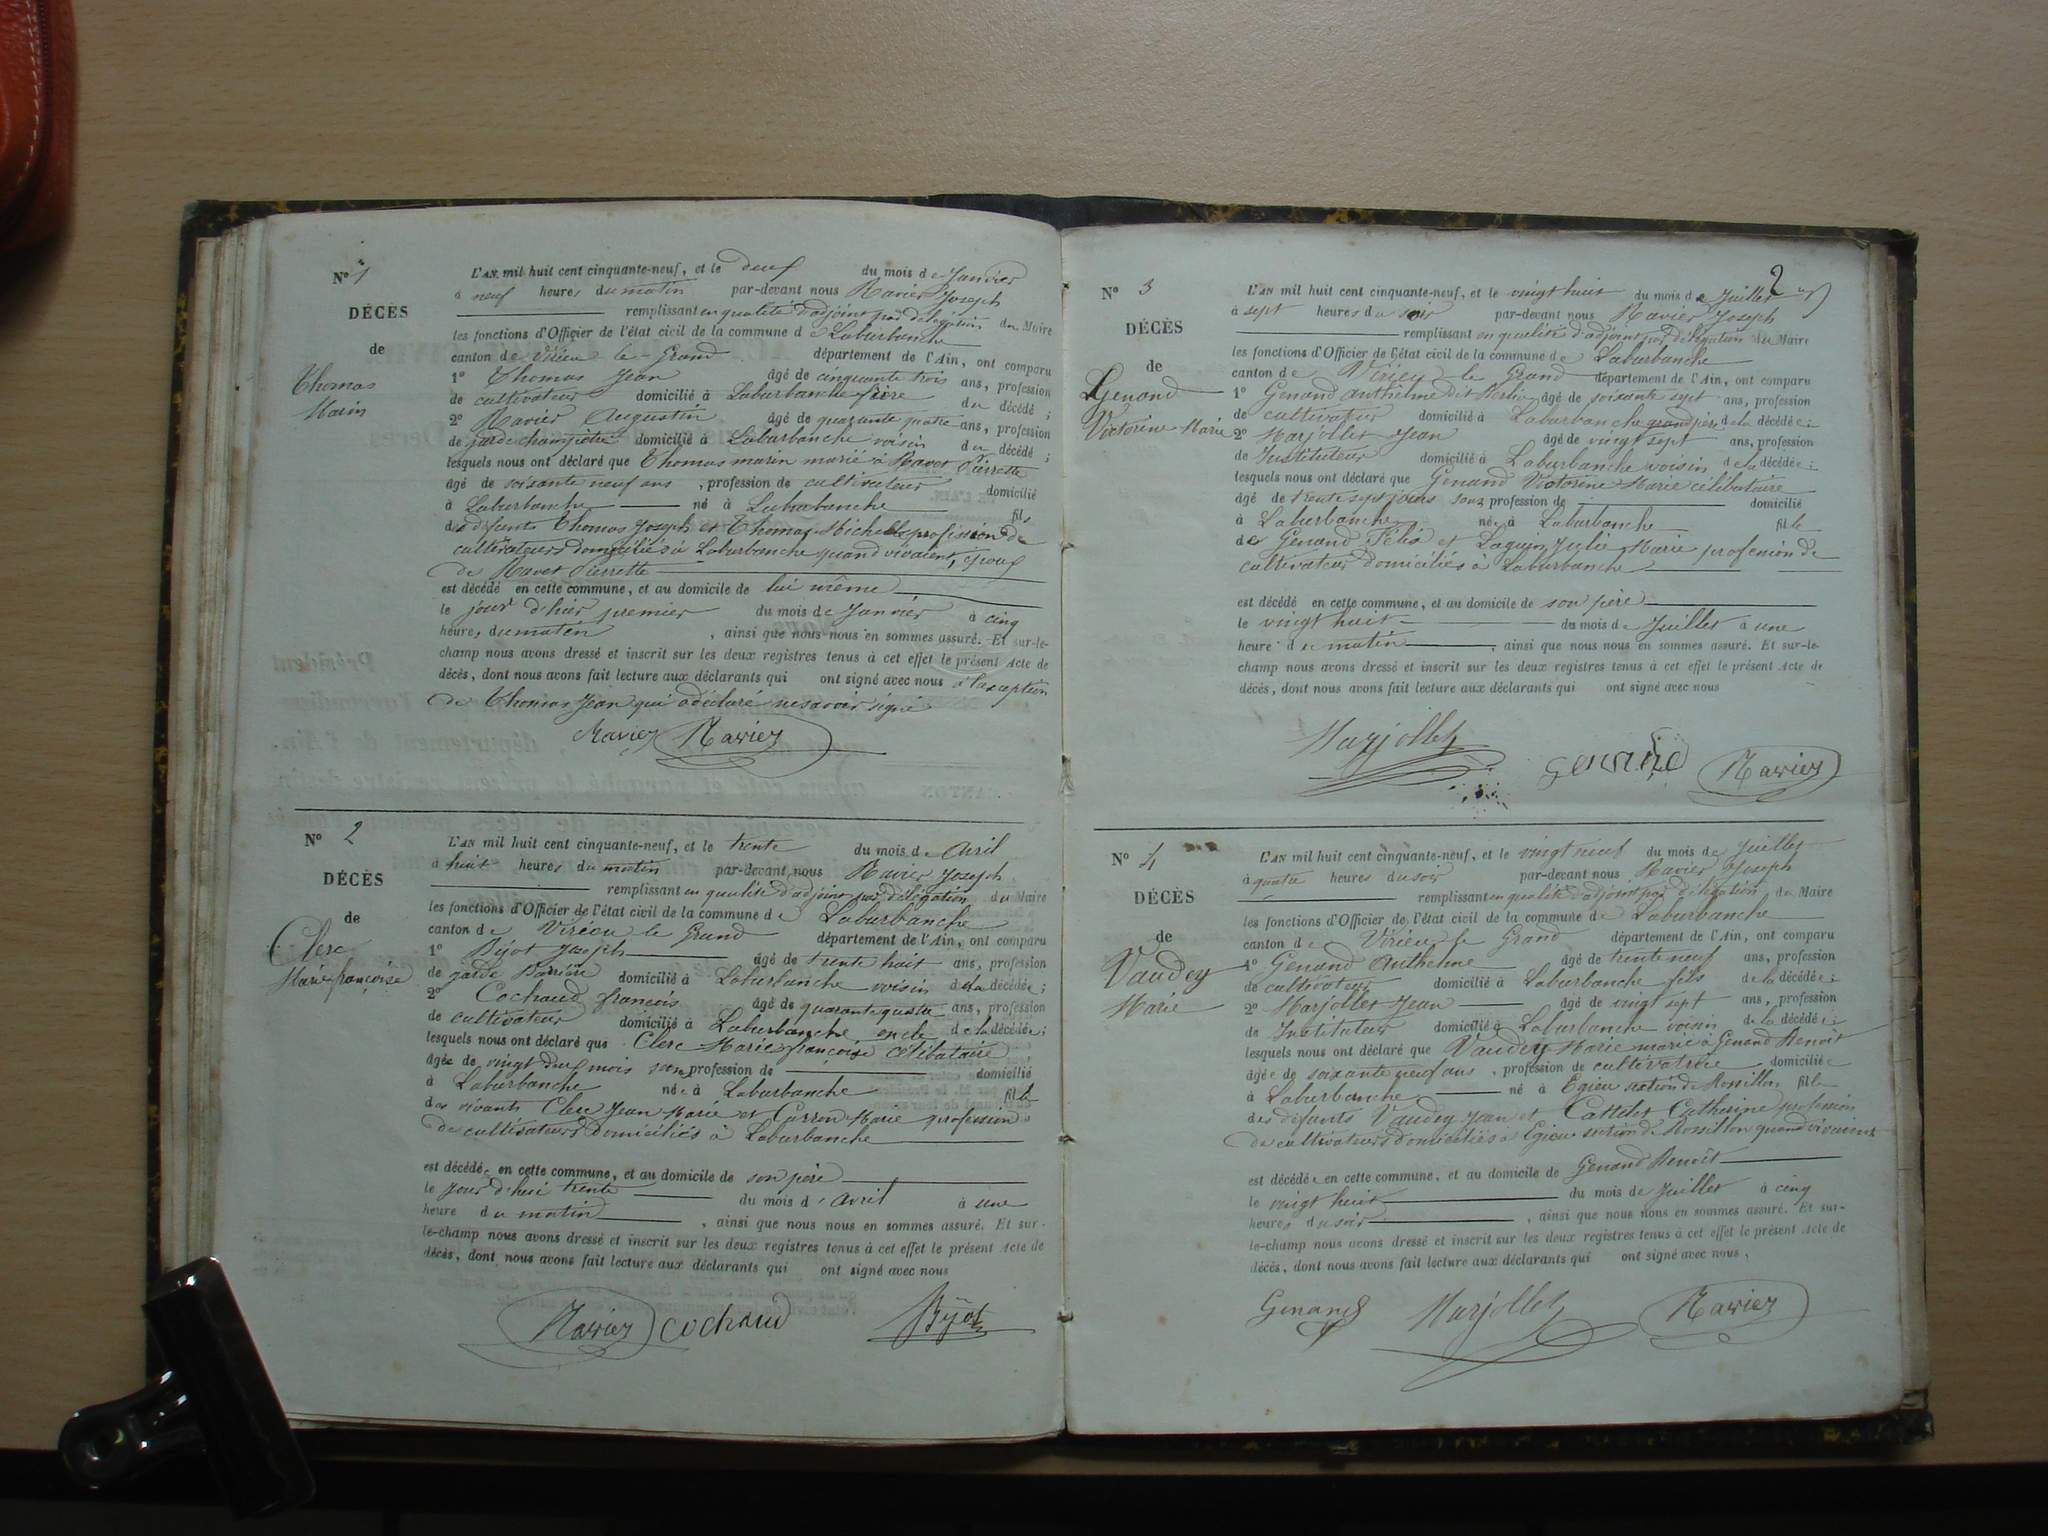 N° 1
DÉCÈS
de
Thomas
Marin
L'AN mil huit cent cinquante-neuf, et le deux du mois de Janvier
à neuf heures du matin par-devant nous Ravier Joseph
remplissant en qualité d'adjoint par délégation du Maire
les fonctions d'Officier de l'état civil de la commune de Laburbanche
canton de Virieu le Grand département de l'Ain, ont comparu
1° Thomas Jean âgé de cinquante trois ans, profession
de cultivateur domicilié à Laburbanche frère du décédé ;
2° Ravier Augustin âgé de quarante quatre ans, profession
de garde champêtre domicilié à Laburbanche voisin du décédé ;
lesquels nous ont déclaré que Thomas marin marié à Ravet Pierrette
âgé de soixante neuf ans, profession de cultivateur domicilié
à Laburbanche né à Laburbanche fils
des défunts Thomas Joseph et Thomas Michelle profession de
cultivateurs domiciliés à Laburbanche quand vivaient, époux
de Ravet Pierrette
est décédé en cette commune, et au domicile de lui même
le jour d'hier premier du mois de Janvier à cinq
heures du matin, ainsi que nous nous en sommes assuré. Et sur-le-
champ nous avons dressé et inscrit sur les deux registres tenus à cet effet le présent Acte de
décès, dont nous avons fait lecture aux déclarants qui ont signé avec nous à l'exception
de Thomas Jean qui a déclaré ne savoir signé
Ravier Ravier
N° 2
DÉCÈS
de
Clerc
Marie françoise
L'AN mil huit cent cinquante-neuf, et le trente du mois de Avril
à huit heures du matin par-devant nous Ravier Joseph
remplissant en qualité d'adjoint par délégation du Maire
les fonctions d'Officier de l'état civil de la commune de Laburbanche
canton de Virieu le Grand département de l'Ain, ont comparu
1° Bijot Joseph âgé de trente huit ans, profession
de garde Barrière domicilié à Laburbanche voisin de la décédée ;
2° Cochaud françois âgé de quarante quatre ans, profession
de cultivateur domicilié à Laburbanche oncle de la décédée ;
lesquels nous ont déclaré que Clerc Marie françoise célibataire
âgée de vingt deux mois sans profession de domicilié
à Laburbanche née à Laburbanche fille
des vivants Clerc Jean Marie et Carron Marie profession
de cultivateurs domiciliés à Laburbanche
est décédée en cette commune, et au domicile de son père
le jour d'hui trente du mois d'avril à une
heure du matin, ainsi que nous nous en sommes assuré. Et sur-
le-champ nous avons dressé et inscrit sur les deux registres tenus à cet effet le présent Acte de
décès, dont nous avons fait lecture aux déclarants qui ont signé avec nous
Ravier cochaud Bijot
2
N° 3
DÉCÈS
de
Genand
Victorine Marie
L'AN mil huit cent cinquante-neuf, et le vingt huit du mois de Juillet
à sept heures du soir par-devant nous Ravier Joseph
remplissant en qualité d'adjoint par délégation du Maire
les fonctions d'Officier de l'état civil de la commune de Laburbanche
canton de Virieu le Grand département de l'Ain, ont comparu
1° Genand anthelme dit âgé de soixante sept ans, profession
de cultivateur domicilié à Laburbanche grand père de la décédée ;
2° Marjollet Jean âgé de vingt sept ans, profession
de Instituteur domicilié à Laburbanche voisin de la décédée ;
lesquels nous ont déclaré que Genand Victorine Marie célibataire
âgé de trente sept jours sans profession de domicilié
à Laburbanche née à Laburbanche fille
de Genand Félix et Julie Marie profession de
cultivateur domiciliés à Laburbanche
est décédé en cette commune, et au domicile de son père
le vingt huit du mois de Juillet à une
heure du matin, ainsi que nous nous en sommes assuré. Et sur-le-
champ nous avons dressé et inscrit sur les deux registres tenus à cet effet le présent Acte de
décès, dont nous avons fait lecture aux déclarants qui ont signé avec nous
Marjollet genand Ravier
N° 4
DÉCÈS
de
Vaudey
Marie
L'AN mil huit cent cinquante-neuf, et le vingt neuf du mois de Juillet
à quatre heures du soir par-devant nous Ravier Joseph
remplissant en qualité d'adjoint par délégation du Maire
les fonctions d'Officier de l'état civil de la commune de Laburbanche
canton de Virieu le Grand département de l'Ain, ont comparu
1° Genand Anthelme âgé de trente neuf ans, profession
de cultivateur domicilié à Laburbanche fils de la décédée ;
2° Marjollet Jean âgé de vingt sept ans, profession
de Instituteur domicilié à Laburbanche voisin de la décédée ;
lesquels nous ont déclaré que Vaudey Marie marié à Genand Benoît
âgée de soixante neuf ans, profession de cultivatrice domiciliée
à Laburbanche né à Egieu section de Rossillon fille
des défunts Vaudey Jean et Cattelet Catherine profession
de cultivateurs domiciliés à Egieu section de Rossillon quand vivaient
est décédée en cette commune, et au domicile de Genand Benoît
le vingt huit du mois de Juillet à cinq
heures du soir, ainsi que nous nous en sommes assuré. Et sur-
le-champ nous avons dressé et inscrit sur les deux registres tenus à cet effet le présent Acte de
décès, dont nous avons fait lecture aux déclarants qui ont signé avec nous.
Genand Marjollet Ravier